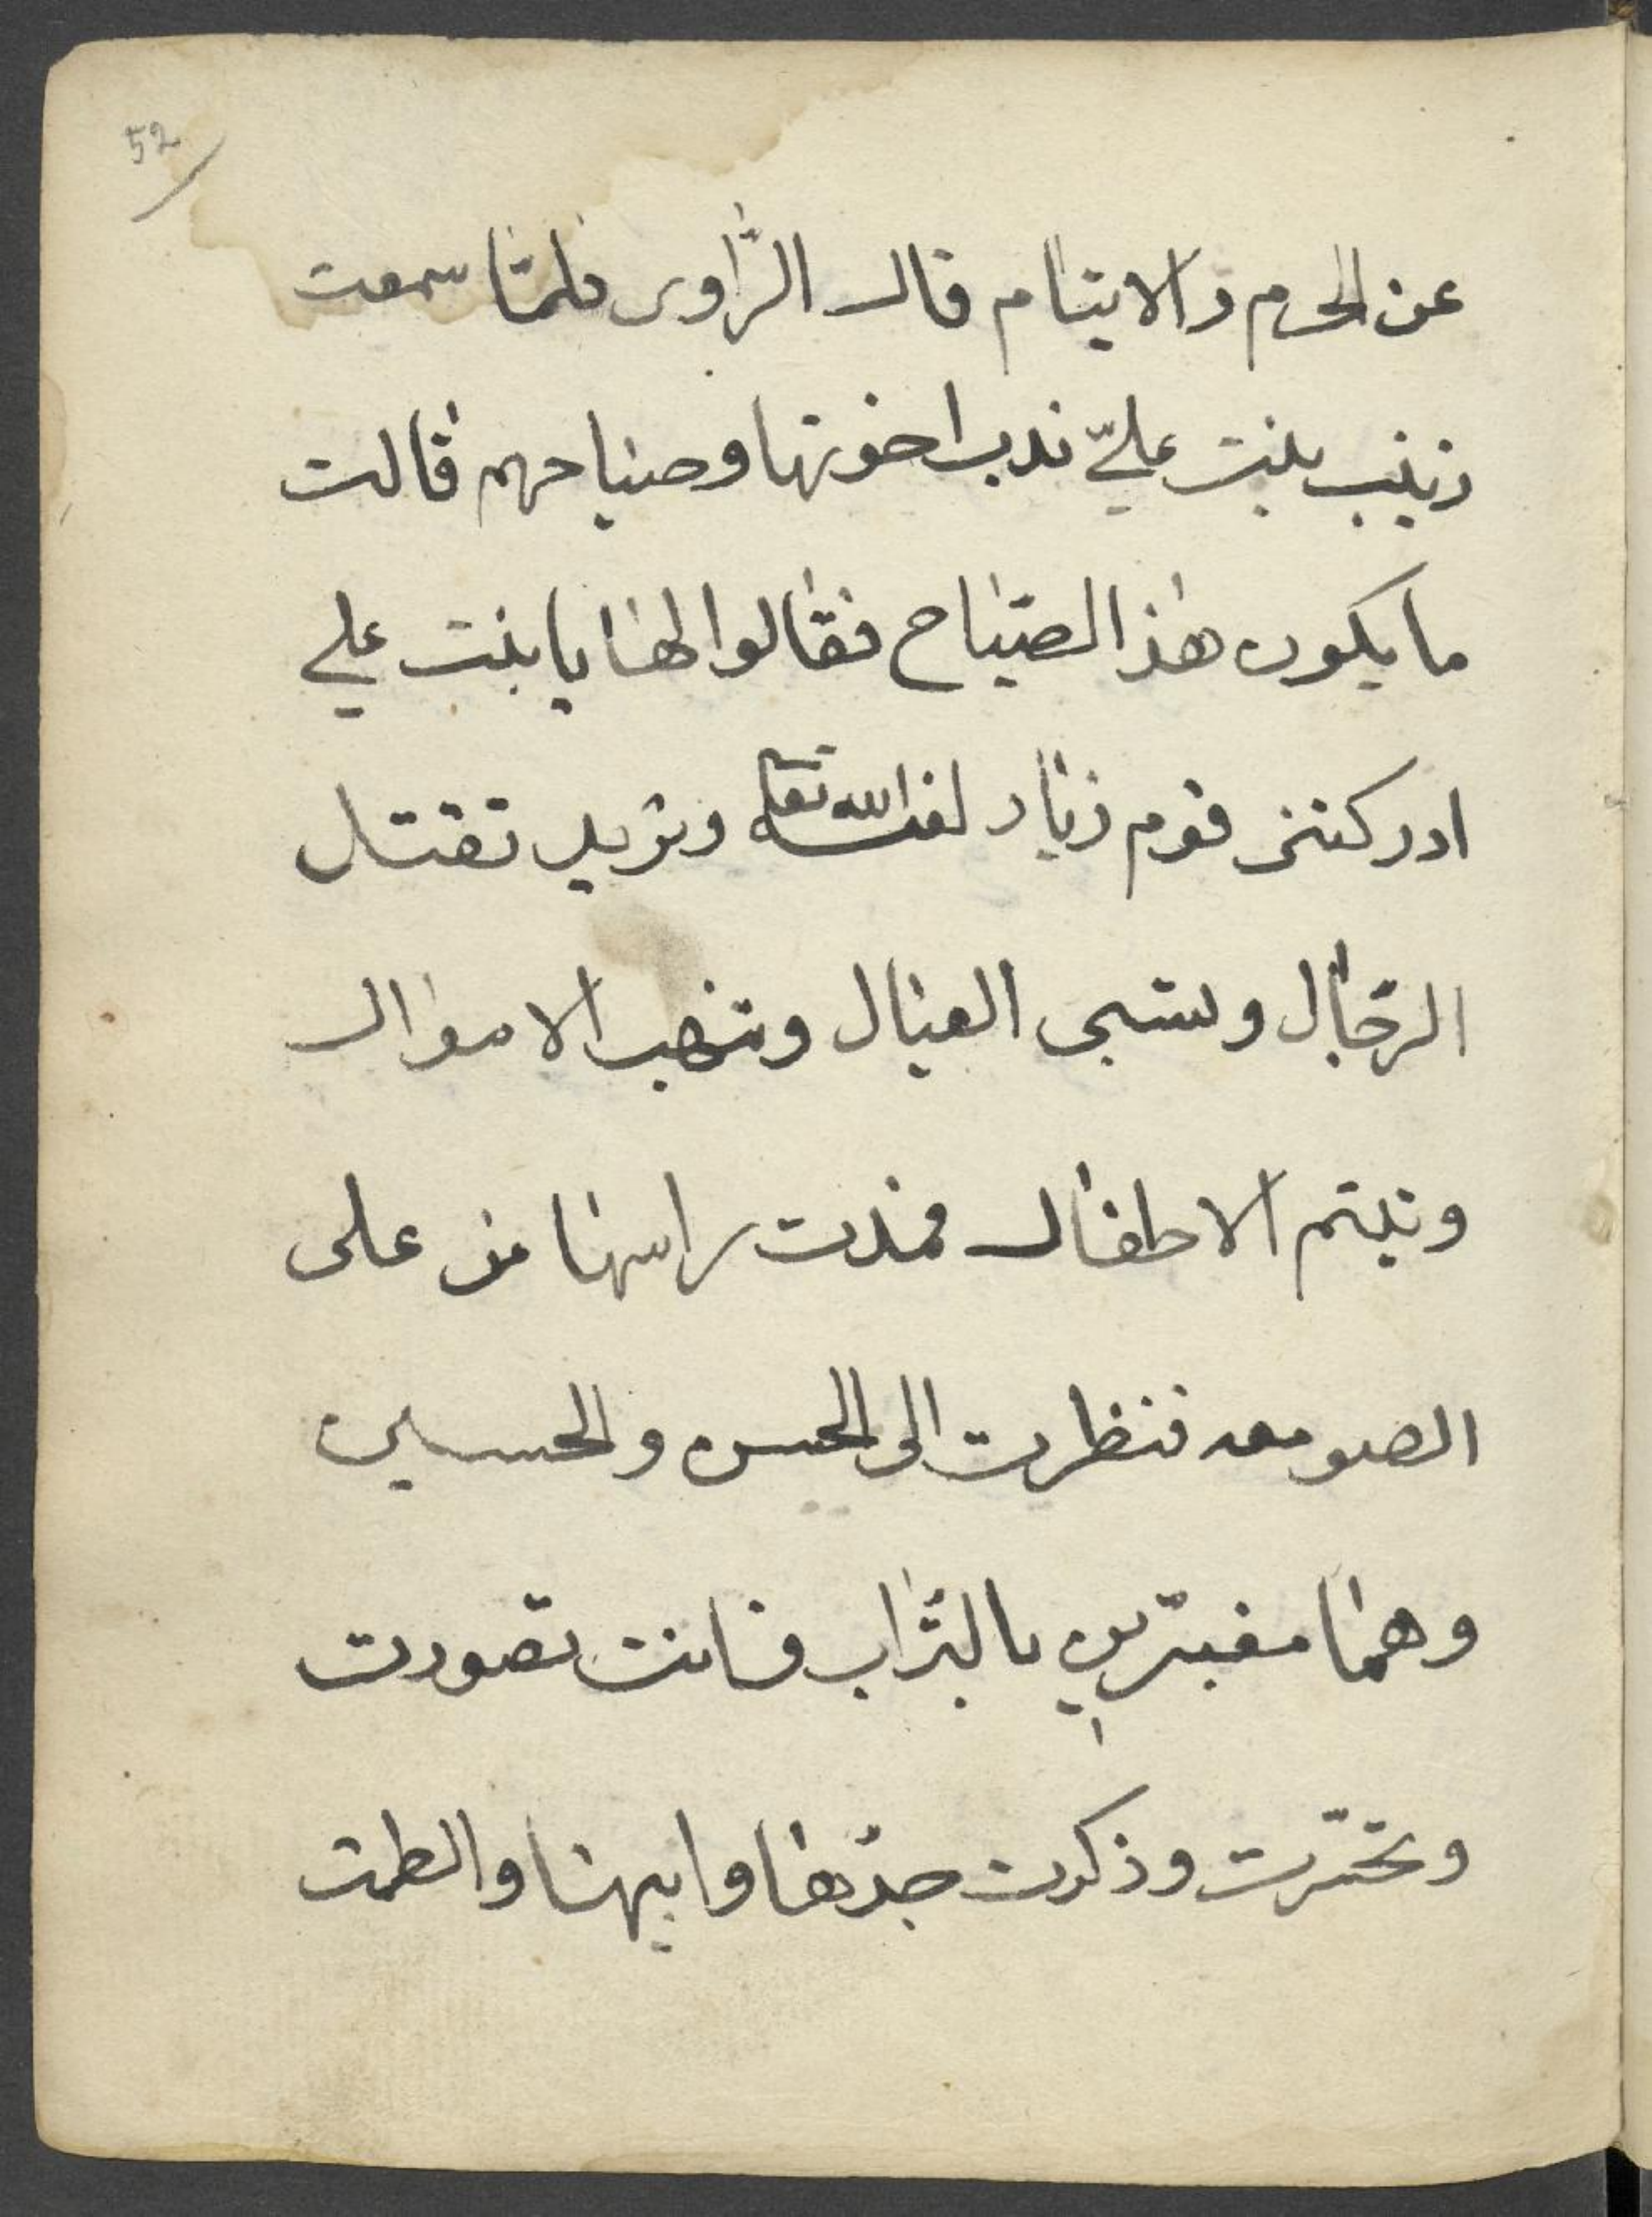 52
عن الحرم والايتام قال الرّاوى فلمّا سمعت
زينب بنت عليّ ندب اخوتها وصياحهم قالت
ما يكون هذا الصّياح فقالوا لها يا بنت علي
ادركتنى قوم زياد لعنه الله تعا وتريد تقتل
الرّجال وتسبى العيال وتنهب الاموال
وتيتم الاطفال فمدت راسها من على
الصومعه فنظرت الى الحسن والحسين
وهما مغبّرين بالتّراب فانت تصورت
وتحسّرت وذكرت جدّها وابيها والطمت